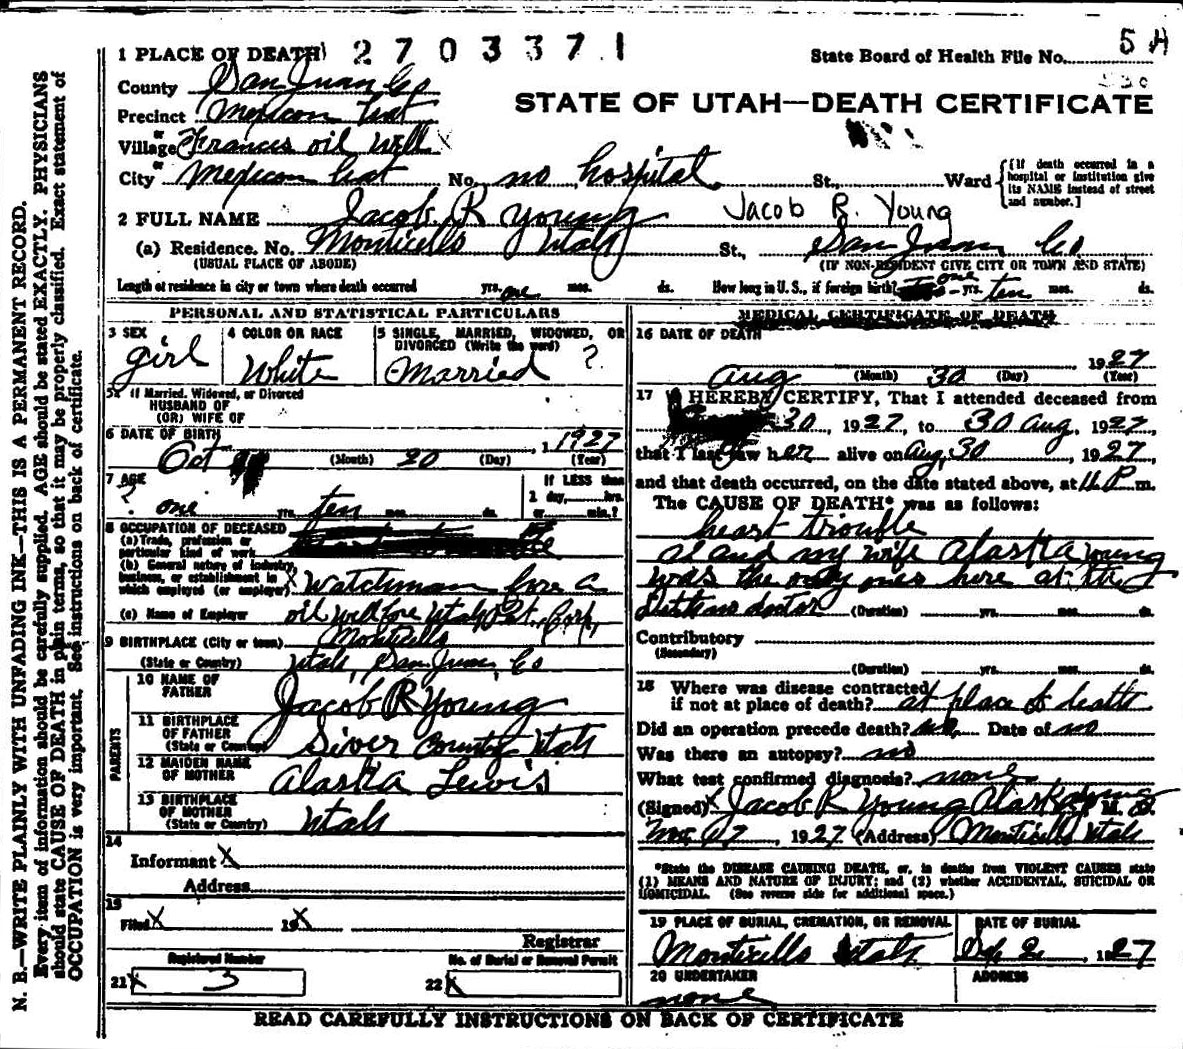 N. B.—WRITE PLAINLY WITH UNFADING INK—THIS IS A PERMANENT RECORD.
Every item of information should be carefully supplied. AGE should be stated EXACTLY. PHYSICIANS
should state CAUSE OF DEATH in plain terms, so that it may be properly classified. Exact statement of
OCCUPATION is very important. See instructions on back of certificate.
1 PLACE OF DEATH 2703371
State Board of Health File No. 54
County San Juan Co
STATE OF UTAH—DEATH CERTIFICATE
Precinct Mexican hat
or
Village Frances oil well
or
City Mexican hat No. no hospital St., Ward
[If death occurred in a
hospital or institution give
its NAME instead of street
and number.]
2 FULL NAME Jacob R Young Jacob R. Young
(a) Residence. No. Monticello Utah St., San Juan Co
(USUAL PLACE OF ABODE) (IF NON-RESIDENT GIVE CITY OR TOWN AND STATE)
Length of residence in city or town where death occurred yrs. one mos. ds. How long in U.S., if foreign birth? one yrs. ten mos. ds.
PERSONAL AND STATISTICAL PARTICULARS
3 SEX girl
4 COLOR OR RACE White
5 SINGLE, MARRIED, WIDOWED, OR
DIVORCED (Write the word)
Married ?
5a If Married, Widowed, or Divorced
HUSBAND OF
(OR) WIFE OF
6 DATE OF BIRTH
Oct (Month) 20 (Day), 1 1927 (Year)
7 AGE
? one yrs. ten mos. ds.
If LESS than
1 day, hrs.
or min.?
8 OCCUPATION OF DECEASED
(a) Trade, profession or
particular kind of work
(b) General nature of industry,
business, or establishment in
which employed (or employer) X Watchman fore a
(c) Name of Employer oil well fore Utah Pet. Corp,
9 BIRTHPLACE (City or town) Monticello
(State or Country) Utah, San Juan, Co
PARENTS
10 NAME OF
FATHER Jacob R Young
11 BIRTHPLACE
OF FATHER
(State or Country) Siver Country Utah
12 MAIDEN NAME
OF MOTHER Alaska Lewis
13 BIRTHPLACE
OF MOTHER
(State or Country) Utah
14
Informant X
Address
15
Filed X 19X
Registrar
Registered Number
21 X 3
No. of Burial or Removal Permit
22 X
MEDICAL CERTIFICATE OF DEATH
16 DATE OF DEATH
Aug (Month) 30 (Day) 1927 (Year)
17 I HEREBY CERTIFY, That I attended deceased from
30, 1927, to 30 Aug, 1927,
that I last saw her alive on Aug, 30, 1927,
and that death occurred, on the date stated above, at 11 P m.
The CAUSE OF DEATH* was as follows:
heart trouble
and my wife Alaska Young
was the only ones here at the
doctor (Duration) yrs. mos. ds.
Contributory
(Secondary)
(Duration) yrs. mos. ds.
18 Where was disease contracted
if not at place of death? at place of death
Did an operation precede death? no Date of no
Was there an autopsy? no
What test confirmed diagnosis? none
(Signed) X Jacob R Young Alaska Young M. D.
1927 (Address) Monticello Utah
*State the DISEASE CAUSING DEATH, or, in deaths from VIOLENT CAUSES state
(1) MEANS AND NATURE OF INJURY; and (2) whether ACCIDENTAL, SUICIDAL OR
HOMICIDAL. (See reverse side for additional space.)
19 PLACE OF BURIAL, CREMATION, OR REMOVAL
Monticello Utah
DATE OF BURIAL
Sep 2, 1927
20 UNDERTAKER
none
ADDRESS
READ CAREFULLY INSTRUCTIONS ON BACK OF CERTIFICATE